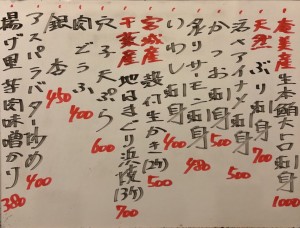 奄美産生本鮪大トロ刺身 1000
天然ぶり刺身 700
活〆アイナメ刺身 500
かつお刺身 500
炙りサーモン刺身 480
いわし刺身 400
宮城産殻付生かき(2ケ) 500
千葉産地はまぐり浜焼(3ケ) 700
穴子天ぷら 600
肉どうふ 400
銀杏 450
アスパラバター炒め 400
揚げ里芋肉味噌かけ 380